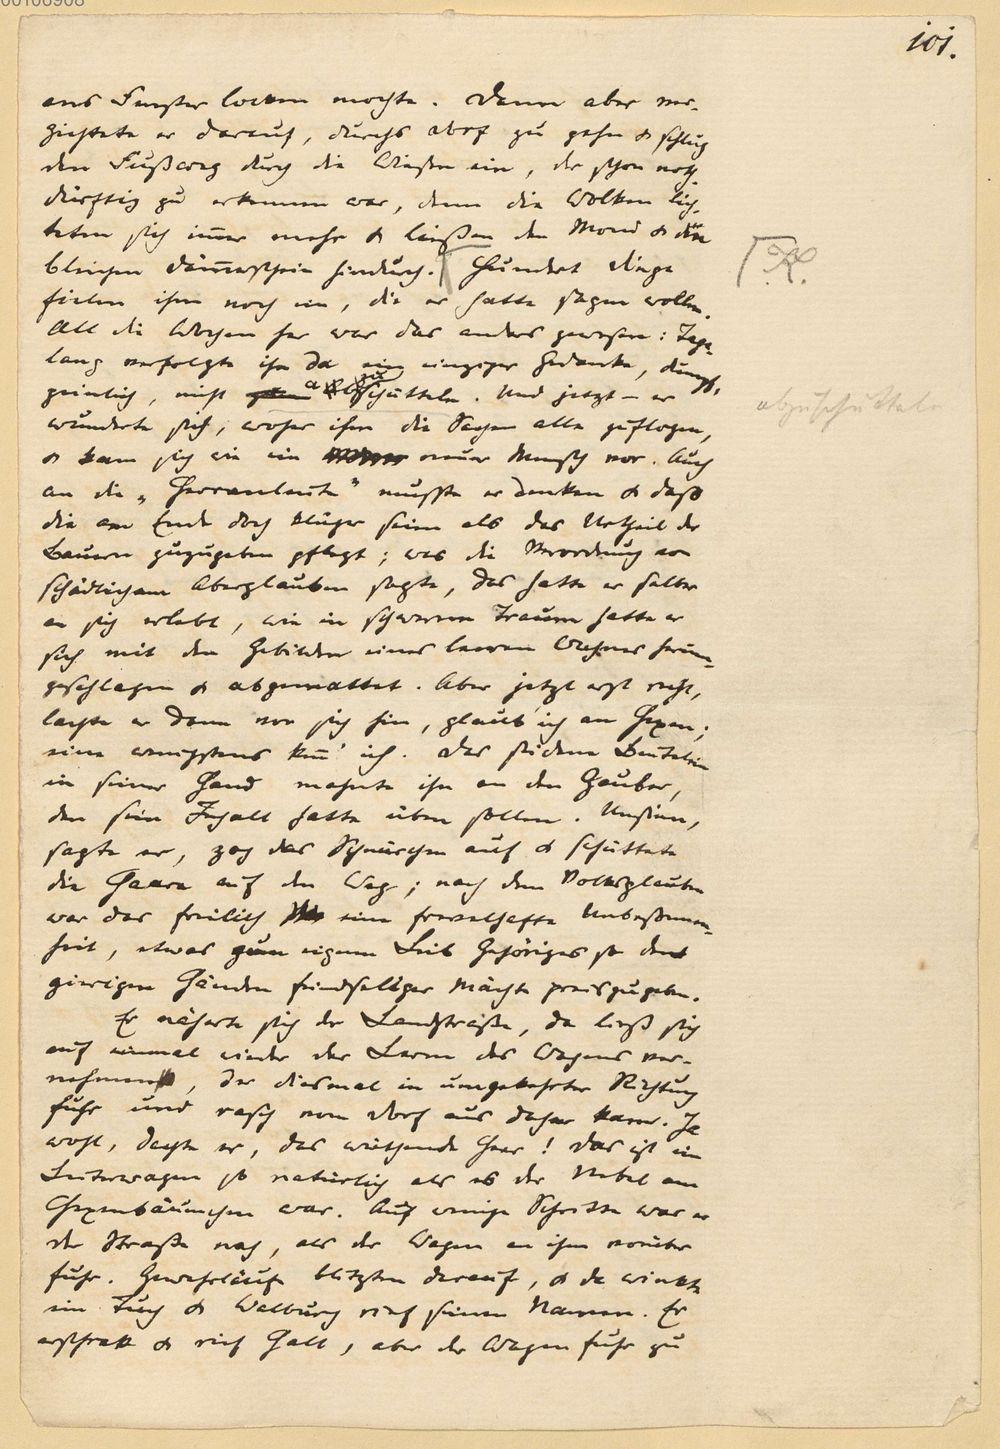 00106908
101.
ans Fenster locken mochte. Dann aber ver-
zichtete er darauf, durchs Dorf zu gehn & schlug
den Fußweg durch die Wiesen ein, der schon noth-
dürftig zu erkennen war, denn die Wolken lich-
teten sich immer mehr & ließen den Mond & den
bleichen Dämmerschein hindurch. Hundert Dinge
K.
fielen ihm noch ein, die er hatte sagen wollen.
All die Wochen her war das anders gewesen: Tage-
lang verfolgte ihn da ein einziger Gedanke, dumpf,
peinlich, nicht abzuschütteln. Und jetzt – er
abzuschütteln
wunderte sich, woher ihm die Sachen alle geflogen,
& kam sich wie ein neuer Mensch vor. Auch
an die „Herrenleute" mußte er denken & daß
die am Ende doch klüger seien als das Urtheil der
Bauern zuzugeben pflegt; was die Verordnung von
schädlichem Aberglauben sagte, das hatte er selber
an sich erlebt, wie in schwerem Traum hatte er
sich mit den Gebilden eines leeren Wahnes herum-
geschlagen & abgemattet. Aber jetzt erst recht,
lachte er dann vor sich hin, glaub' ich an Hexen;
eine wenigstens kenn' ich. Das seidene Beutelein
in seiner Hand mahnte ihn an den Zauber,
den sein Inhalt hatte üben sollen. Unsinn,
sagte er, zog das Schnürchen auf & schüttete
die Haare auf den Weg; nach dem Volksglauben
war das freilich eine frevelhafte Unbesonnen-
heit, etwas zum eigenen Leib Gehöriges so den
gierigen Händen feindseliger Mächte preiszugeben.
Er näherte sich der Landstraße, da ließ sich
auf einmal wieder der Lärm des Wagens ver-
nehmen, der diesmal in umgekehrter Richtung
fuhr und rasch vom Dorf aus daher kam. Ja
wohl, dachte er, das wüthende Heer! Das ist ein
Leiterwagen so natürlich als es der Nebel am
Hexenbäumchen war. Auf wenige Schritte war er
der Straße nah, als der Wagen an ihm vorüber
fuhr. Gewehrläufe blitzten darauf, & da winkte
ein Tuch & Walburg rief seinen Namen. Er
erschrak & rief Halt, aber der Wagen fuhr zu